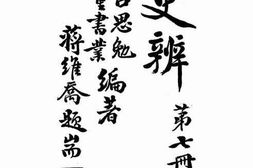 史辨
第七冊
呂思勉
童書業
編著
蔣維喬題耑